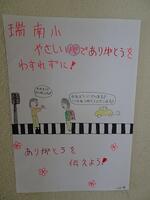 瑞南小
やさしい心でありがとうを
わすれずに！
ありがとうを
伝えよう！